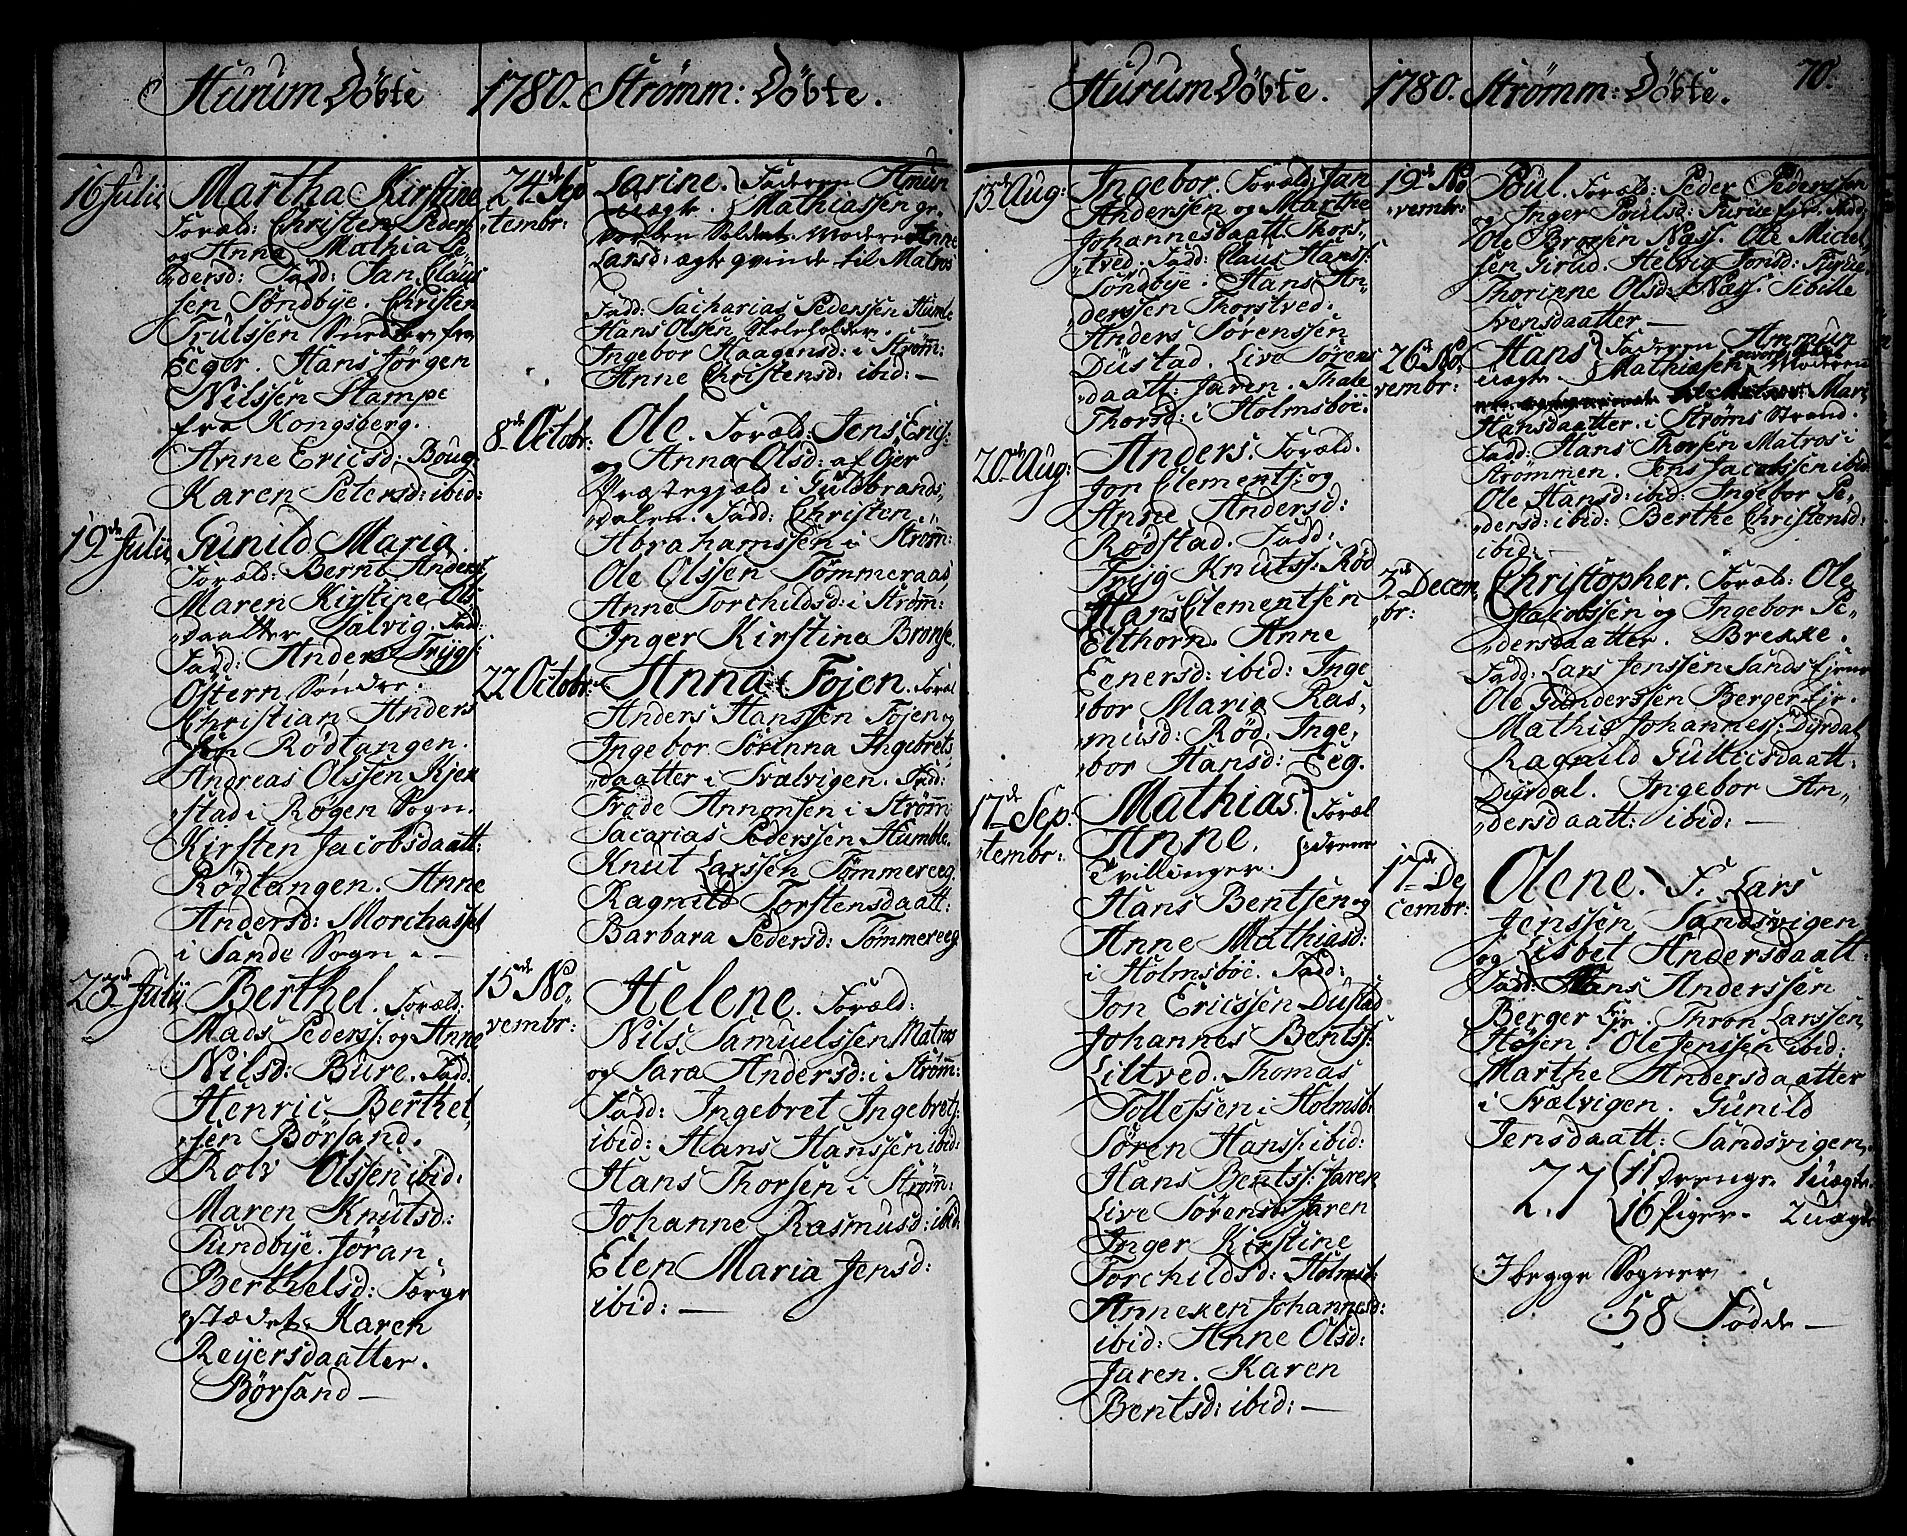 Hurum Döbte
1780.
Strömm: Döbte.
16 Julii
Martha Kirstine
Foræld: Christen Peders
og Anne Mathia Pe
dersd: Fadd: Jan Claus
sen Söndbÿe. Christen
Trulssen fra
Eger. Hans Jörgen
Nilssen Stampe
fra Kongsberg.
Anne Ericsd: Boug
Karen Petersd: ibid:
19de Julii
Gunild Maria.
Foræld: Bernt Anders
Maren Kirstine Ols
daatter Salvig. Fad
Fadd: Anders Trÿgs:
Östern Sönder.
Christian Anders
sen Rödtangen.
Andreas Olssen Kjek
stad i Rögen Sogn.
Kirsten Jacobsdaatt:
Rödtangen. Anne
Andersd: Morchasset
i Sande Sogn. —
23de Julii
Berthel. Foræld:
Mads Pederss: og Anne
Nilsd: Bure. Fadd:
Henric Berthel
sen Börsand.
Rolv Olssen ibid:
Maren Knutsd:
Sundbÿe. Jöran
Berthelsd: Færge
stædet. Karen
Reÿersdaatter.
Börsand —
24de Sep
tembr:
Larine. Faderen Amun
uægte. Mathiassen ge
vorben Soldat. Moderen Anne
Larsd: ægte qvinde til Matros
Fadd: Sacharias Pederssen Humle
Hans Olssen Skoleholder.
Ingebor Haagensd: i Ström:
Anne Christensd: ibid: —
8de Octobr:
Ole. Foræld: Jens Erics:
og Anna Olsd: af Öjer
Præstegjæld i Guldbrands
dalen. Fadd: Christen
Abrahamssen i Ström:
Ole Olssen Tömmeraas,
Anne Torchildsd: i Ström:
Inger Kirstine Bronse.
22 Octobr:
Anna Föjen. Foræl
Anders Hanssen Föjen og
Ingebor Sörinna Ingebrets
daatter i Svælvigen. Fad:
Frode Annonsen i Ström:
Sacarias Pederssen Humble.
Knut Larssen Tömmereeg.
Ragnild Torstensdaatt:
Barbara Pedersd: Tömmereeg.
15de No
vembr:
Helene. Foræld:
Nils Samuelssen Matros
og Sara Andersd: i Ström:
Fadd: Ingebret Ingebrets:
ibid: Hans Hanssen ibid:
Hans Thorsen i Ström:
Johanne Rasmusd: ibid
Elen Maria Jensd:
ibid: —
Hurum Döbte.
1780.
Strömm: Döbte.
70.
13de Aug:
Ingebor. Foræld: Jan
Anderssen og Marthe
Johannesdaatt: Thors
tved. Fadd: Claus Hanss:
Söndbÿe. Hans An
derssen Thorstved.
Anders Sörenssen
Düstad. Live Sörens
daatt: Jaren. Thale
Thorsd: i Holmsböe.
20de Aug:
Anders. Foræld:
Jon Clements: og
Anne Andersd:
Rödstad. Fadd:
Trÿg Knutss: Röd
Hans Clementsen
Elthorn. Anne
Eenersd: ibid: Inge
bor Maria Ras
musd: Röd. Inge
bor Hansd: Eeg.
17de Sep:
tembr:
Mathias. Foræl
Anne. drene
Tvillinger.
Hans Bentsen og
Anne Mathiasd:
i Holmsböe. Fadd:
Jon Ericssen Düstad
Johannes Bentss:
Liltved. Thomas
Tollefsen i Holmsb:
Sören Hanss: ibid:
Hans Bentss: Jaren
Live Sörensd: Jaren
Inger Kirstine
Torchildsd: Holmsb:
Anneken Johannesd:
ibid: Anne Olsd:
Jaren. Karen
Bentsd: ibid: —
19de No
vembr:
Poul. Foræld: Peder Pederssen
og Inger Poulsd: Turue Ejr. Fadd
Ole Brosen Næss. Ole Michel
sen Girud. Helvig Jonsd:
Thorinne Olsd: Næs. Sibille
Svensdaatter —
26de No
vembr:
Hans Faderen Ammun
uægte. Mathiesen Moderen
Mari
Hansdaatter i Ströms Strand.
Fadd: Hans Thorsen Matros i
Strömmen. Jens Jacobssen ibid:
Ole Hansd: ibid: Ingebor Pe
dersd: ibid: Berthe Christensd:
ibid: —
3de Decem
br:
Christopher. Foræld: Ole
Jacobssen og Ingebor Pe
dersdaatter. Brekke.
Fadd: Lars Jenssen Sands Ejene
Ole Gunderssen Berger Ejr.
Mathis Johanness: Dÿrdal
Ragnild Guttiesdaatt:
Dÿrdal. Ingebor An
dersdaatt: ibid: —
17de De
cembr:
Olene. F. Lars
Jenssen Sandsvigen
og Lisbet Andersdaatt:
Fadd: Hans Anderssen
Berger Ejr. Thron Larssen
Höjen. Ole Jenssen ibid:
Marthe Andersdaatter
i Svælvigen. Gunild
Jensdaatt: Sandsvigen.
27 11 drenge 1 uægte.
16 Piger. 2 uægte
I begge Sogner
58 Födde —